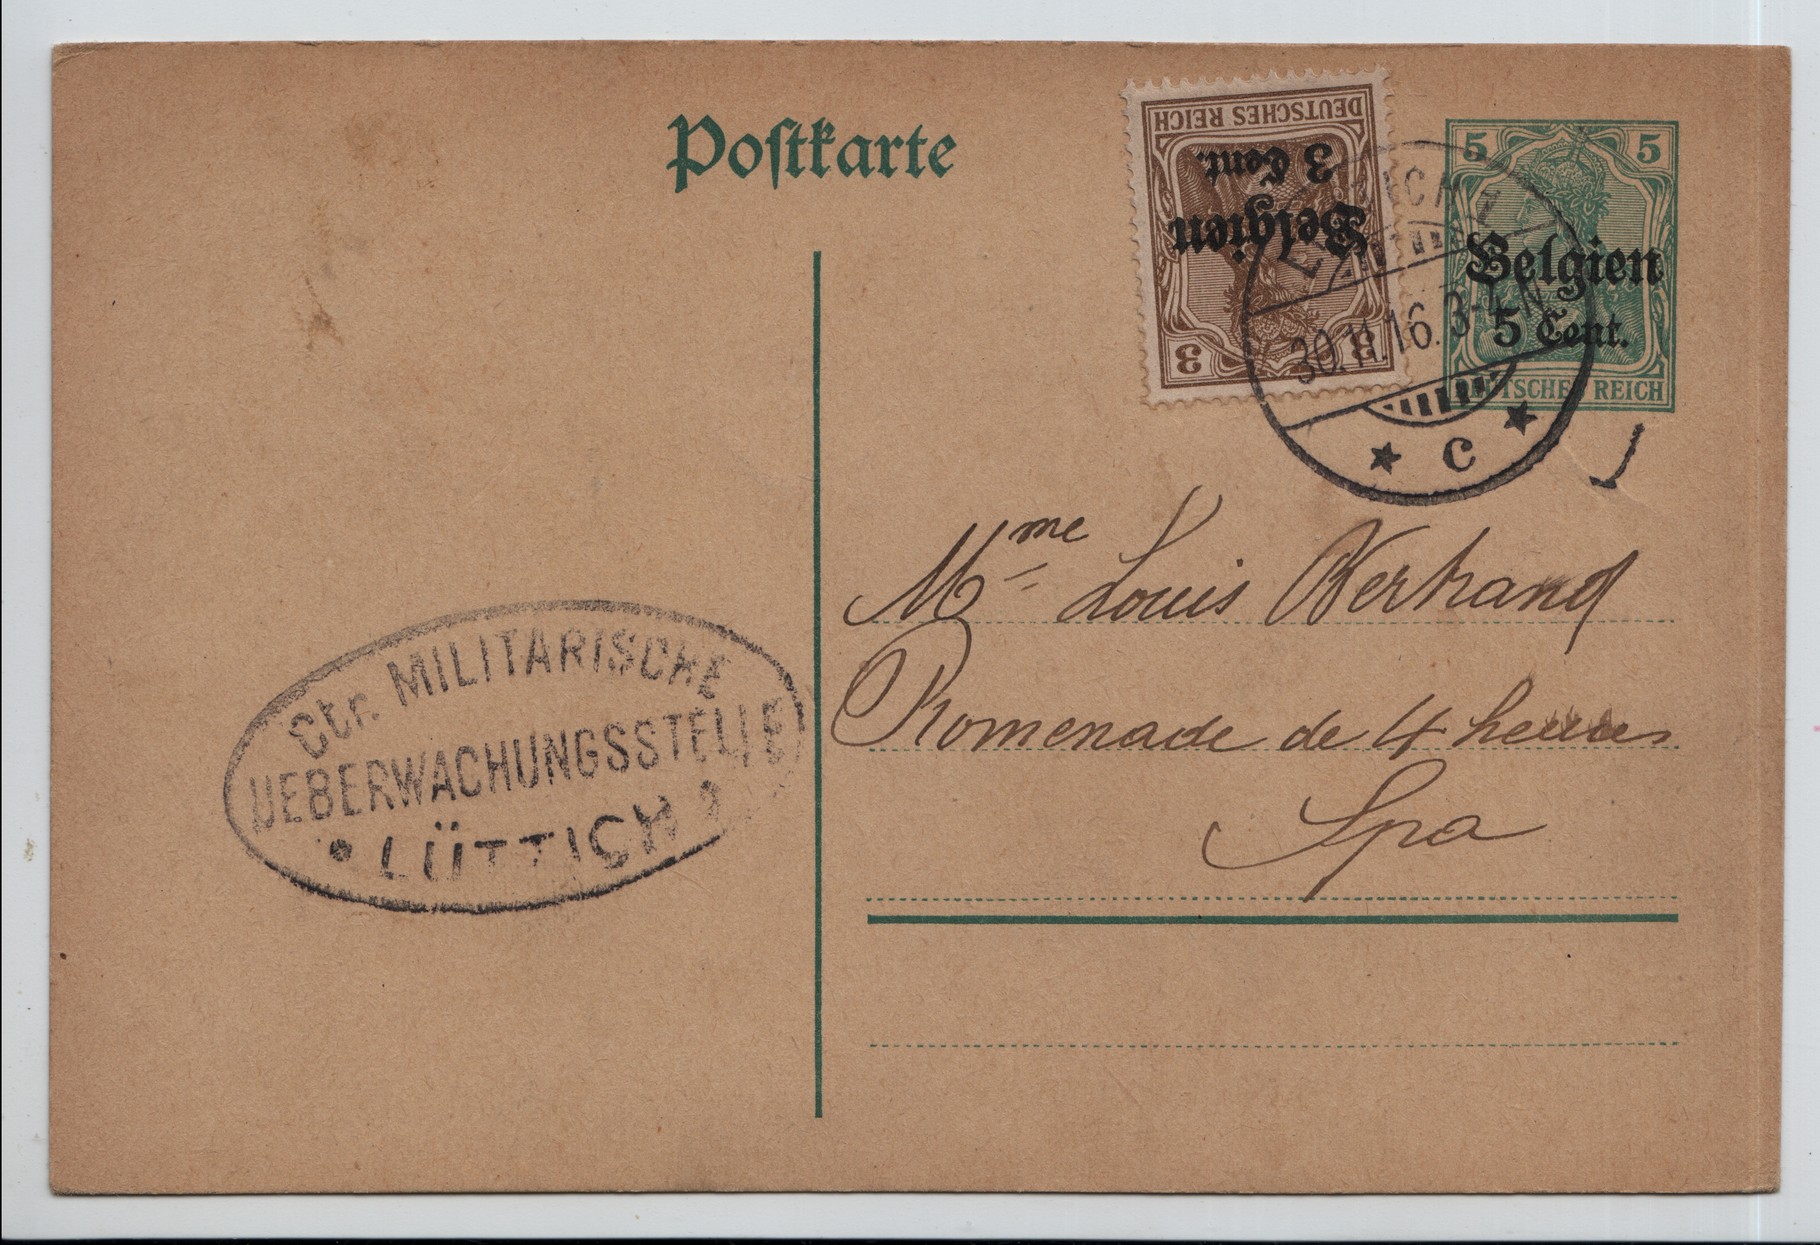 Postkarte
DEUTSCHES REICH
3 Cent.
Belgien
3 3
5 5
Belgien
5 Cent.
DEUTSCHES REICH
30.11.16. 3-4 N
* c *
Mme Louis Bertrand
Promenade de 4 heures
Spa
Ctr. MILITÄRISCHE
UEBERWACHUNGSSTELLE
* LÜTTICH *